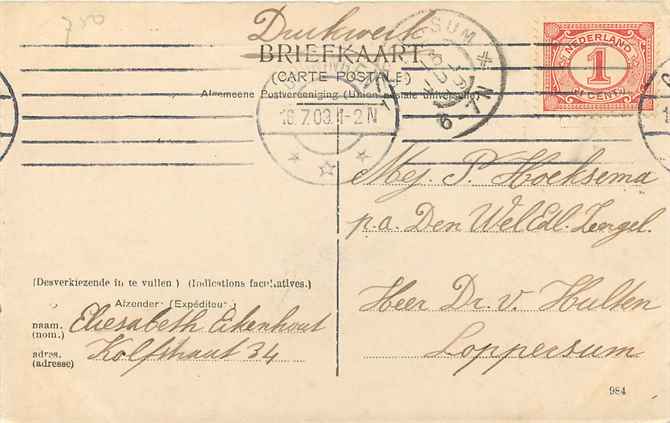 750
Drukwerk
BRIEFKAART
(CARTE POSTALE)
Algemeene Postvereeniging (Union postale universelle)
NEDERLAND
1
CENT
16.7.09.1-2 N
SUM
Mej. P. Hoeksema
p.a. Den WelEdl. Zengel.
Heer Dr. v. Hulten
Loppersum
(Desverkiezende in te vullen) (Indications facultatives.)
Afzender (Expéditeur)
naam. Eliesabeth Eikenhout
(nom.)
adres. Kolfstraat 34
(adresse)
984